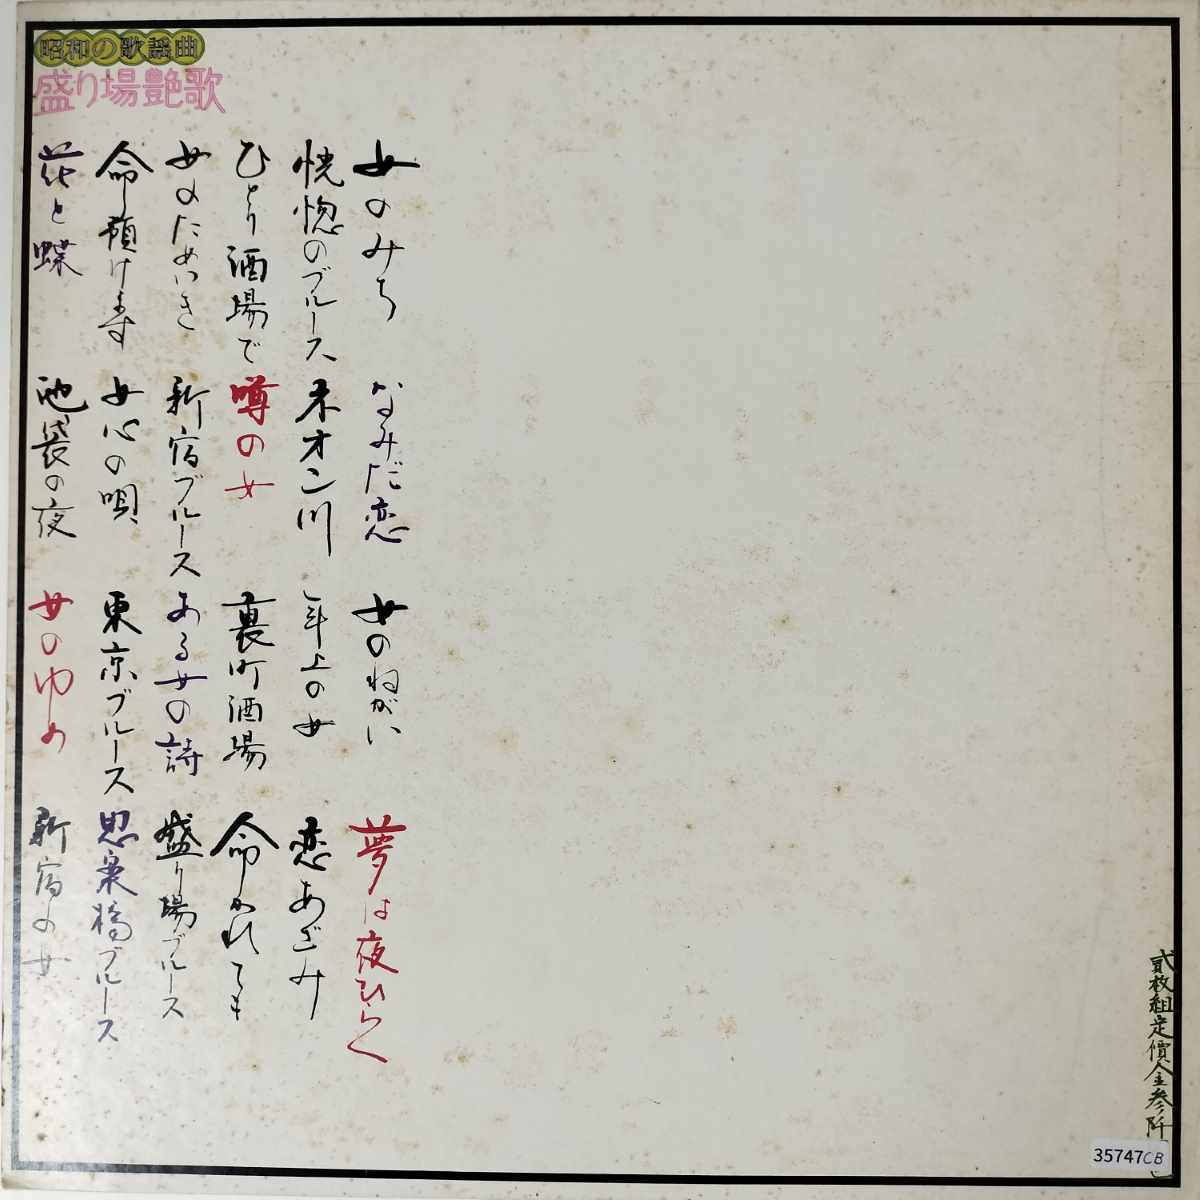 昭和の歌謡曲
盛り場艶歌
女のみち
なみだ恋
女のねがい
夢は夜ひらく
恍惚のブルース
ネオン川
年上の女
恋あざみ
ひとり酒場で
噂の女
裏町酒場
命かれても
女のためいき
新宿ブルース
ある女の詩
盛り場ブルース
命預けます
女心の唄
東京ブルース
思案橋ブルース
花と蝶
池袋の夜
女のゆめ
新宿の女
貳枚組定價金参阡
35747CB